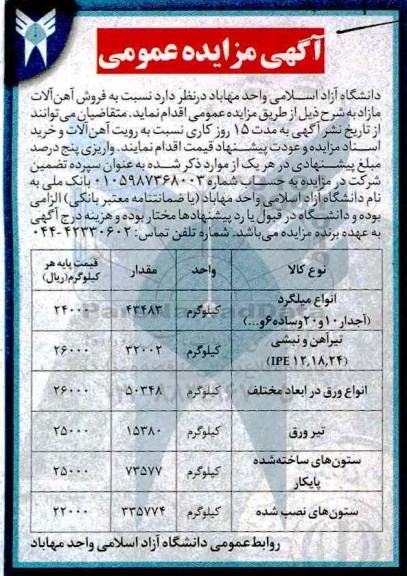 آگهی مزایده عمومی
دانشگاه آزاد اسلامی واحد مهاباد درنظر دارد نسبت به فروش آهن‌آلات
مازاد به شرح ذیل از طریق مزایده عمومی اقدام نماید. متقاضیان می‌توانند
از تاریخ نشر آگهی به مدت ۱۵ روز کاری نسبت به رویت آهن‌آلات و خرید
اسناد مزایده و عودت پیشنهاد قیمت اقدام نمایند. واریزی پنج درصد
مبلغ پیشنهادی در هر یک از موارد ذکر شده به عنوان سپرده تضمین
شرکت در مزایده به حساب شماره ۰۱۰۵۹۸۷۳۶۸۰۰۳ بانک ملی به
نام دانشگاه آزاد اسلامی واحد مهاباد (یا ضمانتنامه معتبر بانکی) الزامی
بوده و دانشگاه در قبول یا رد پیشنهادها مختار بوده و هزینه درج آگهی
به عهده برنده مزایده می‌باشد. شماره تلفن تماس: ۴۲۳۳۰۶۰۲-۰۴۴
نوع کالا واحد مقدار قیمت پایه هر کیلوگرم(ریال)
انواع میلگرد (آجدار۱۰و۲۰وساده۶و...) کیلوگرم ۴۳۴۸۳ ۲۴۰۰۰
تیرآهن و نبشی (IPE ۱۲,۱۸,۲۴) کیلوگرم ۳۲۰۰۲ ۲۶۰۰۰
انواع ورق در ابعاد مختلف کیلوگرم ۵۰۳۴۸ ۲۶۰۰۰
تیر ورق کیلوگرم ۱۵۳۸۰ ۲۵۰۰۰
ستون‌های ساخته‌شده پایکار کیلوگرم ۷۳۵۷۷ ۲۵۰۰۰
ستون‌های نصب شده کیلوگرم ۳۳۵۷۷۴ ۲۲۰۰۰
روابط‌عمومی دانشگاه آزاد اسلامی واحد مهاباد